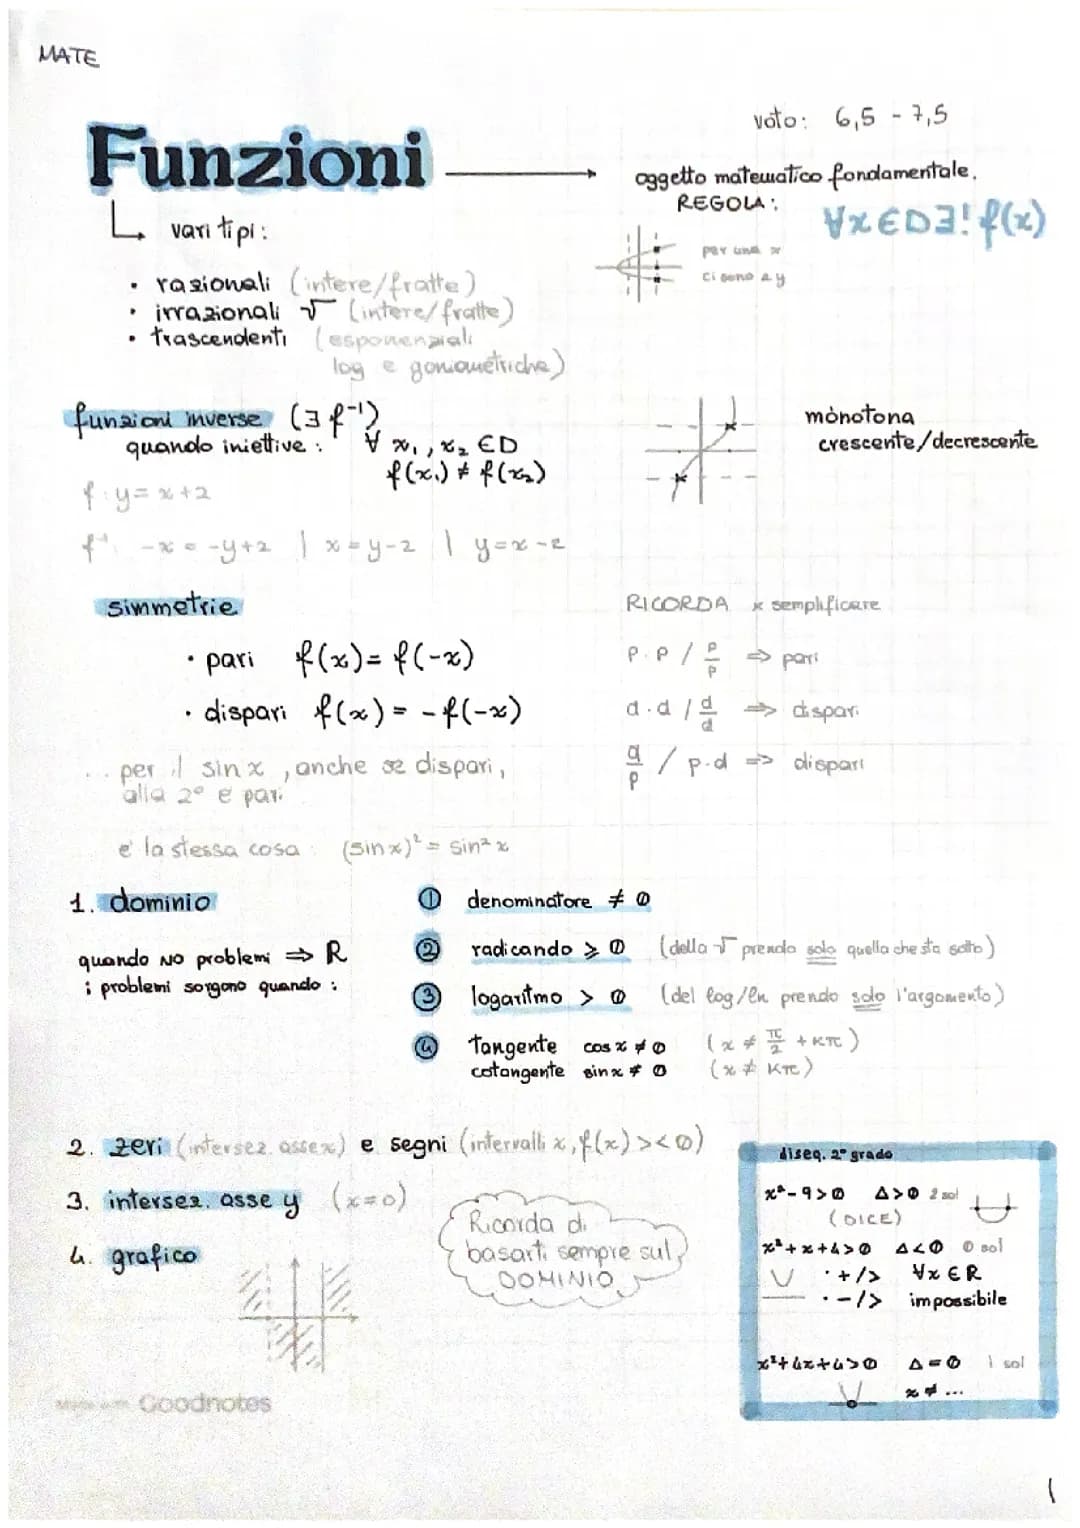 MATE
voto: 6,5 - 7,5
Funzioni
oggetto matematico fondamentale.
REGOLA:
∀x∈D∃! f(x)
per una x
ci sono 2 y
vari tipi:
• razionali (intere/fratte)
• irrazionali √ (intere/fratte)
• trascendenti (esponenziali
log e goniometriche)
funzioni inverse (∃ f⁻¹)
quando iniettive: ∀ x₁, x₂ ∈D
f(x₁) ≠ f(x₂)
mònotona
crescente/decrescente
f: y = x+2
f⁻¹: -x = -y+2 | x = y-2 | y = x-2
simmetrie
• pari f(x) = f(-x)
• dispari f(x) = -f(-x)
... per il sin x, anche se dispari,
alla 2° è pari
è la stessa cosa: (sin x)² = sin² x
RICORDA x semplificare
p·p / p/p ⇒ pari
d·d / d/d ⇒ dispari
d/p / p·d => dispari
1. dominio
quando NO problemi ⇒ R
i problemi sorgono quando:
① denominatore ≠ 0
② radicando ⩾ 0 (della √ prendo solo quella che sta sotto)
③ logaritmo > 0 (del log/ln prendo solo l'argomento)
④ tangente cos x ≠ 0 (x ≠ π/2 + Kπ)
cotangente sin x ≠ 0 (x ≠ Kπ)
2. zeri (intersez. asse x) e segni (intervalli x, f(x) > < 0)
3. intersez. asse y (x=0)
4. grafico
Ricorda di
basarti sempre sul
DOMINIO
diseq. 2° grado
x²-9>0 Δ>0 2 sol
(DICE)
x²+x+4>0 Δ<0 0 sol
• +/> ∀x∈R
• -/> impossibile
x²+4x+4>0 Δ=0 1 sol
x ≠ ...
Made with Goodnotes
1